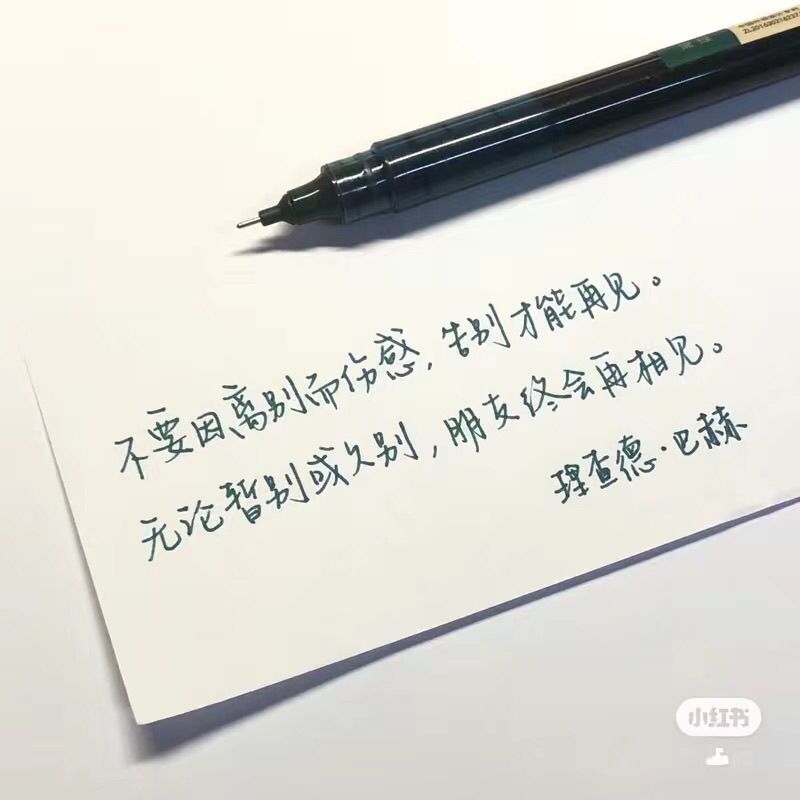 不要因离别而伤感，告别才能再见。
无论暂别或久别，朋友终会再相见。
理查德·巴赫
小红书